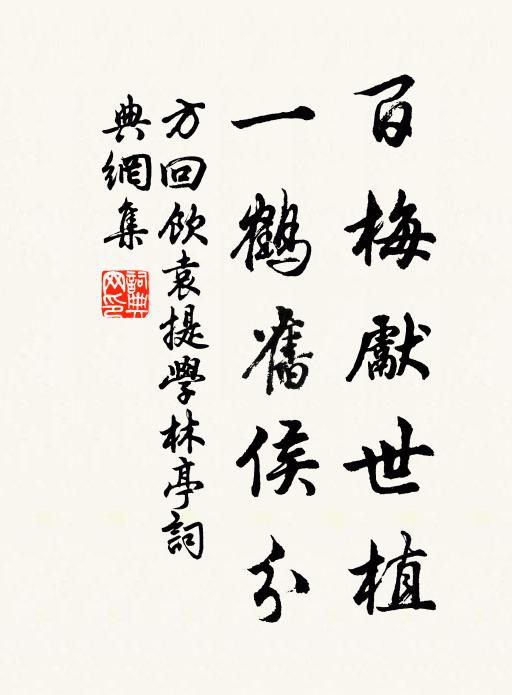 百梅獻世植
一鶴舊侯分
方回飲袁提學林亭詞
典網集
詞典
网印